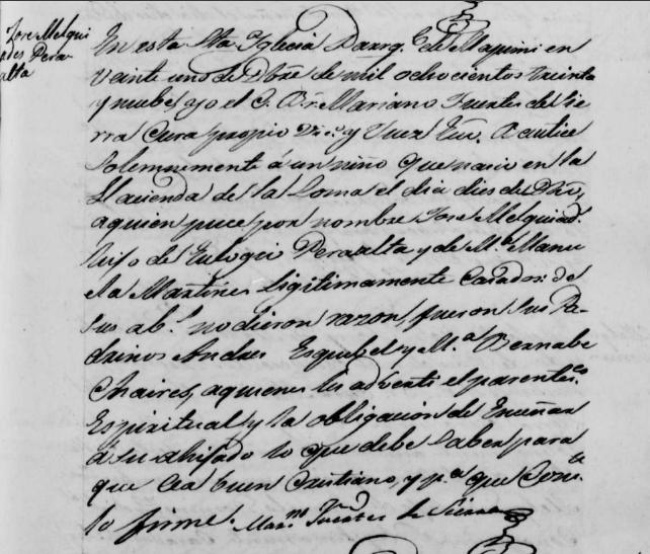 Jose Melqui
ades Pera-
alta
En esta Sta. Iglecia Parroq.l de Mapimi en
veinte uno de Dbre de mil ochocientos treinta
y nuebe, yo el C. Br. Mariano Fuentes de Sie
rra Cura propio Vic.o y Juez Ecc. Bautice
solemnemente á un niño que nacio en la
Hacienda de la Loma el dia dies de Dbre,
aquien puce por nombre Jose Melquiad.s
hijo de Eulogio Peraalta y de M.a Manu
ela Martines Ligitimamente Casados: de
sus ab.s no dieron razon, fueron sus Pa-
drinos Andres Esquibel y M.a Bernabe
Chaires, aquienes les adverti el parentes.co
Espiritual y la obligacion de Enseñar
á su ahijado lo que debe saber para
que sea buen Cristiano, y p.a que Cons.te
lo firmé. Mar.no Fuentes de Sierra